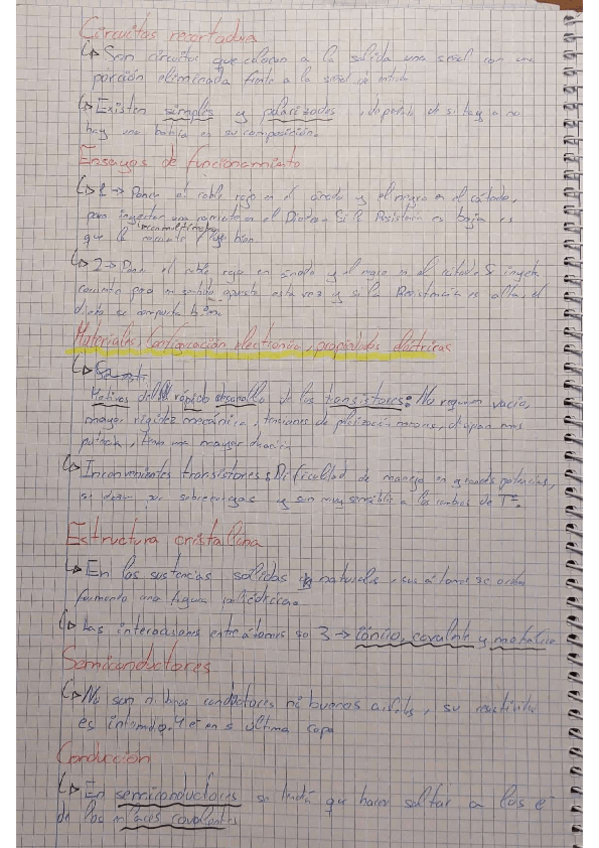 Circuitos recortadores
↳ Son circuitos que colocan a la salida una señal con una
porción eliminada frente a la señal de entrada
↳ Existen simples y polarizados, depende de si hay o no
hay una batería en su composición.
Ensayos de funcionamiento
↳ 1 → Poner el cable rojo en el ánodo y el negro en el cátodo,
para inyectar una corriente en el Diodo. Si la Resistencia es baja es
que la corriente fluye bien
↳ 2 → Poner el cable rojo en ánodo y el negro en el cátodo. Se inyecta
corriente pero en sentido opuesto esta vez y si la Resistencia es alta, el
diodo se comporta bien.
Materiales, configuración electrónica, propiedades eléctricas
↳
Motivos del rápido desarrollo de los transistores: No requieren vacío,
mayor rigidez mecánica, tensiones de polarización menores, disipan menos
potencia, tienen una mayor duración
↳ Inconvenientes transistores: Dificultad de manejo en grandes potencias,
se dañan por sobrecargas y son muy sensibles a los cambios de Tª.
Estructura cristalina
↳ En las sustancias sólidas naturales, sus átomos se ordenan
formando una figura poliédrica.
↳ Las interacciones entre átomos son 3 → iónico, covalente y metálico
Semiconductores
↳ No son ni buenos conductores ni buenos aislantes, su resistividad
es intermedia. 4 e⁻ en su última capa
Conducción
↳ En semiconductores se tendrá que hacer saltar a los e⁻
de los enlaces covalentes